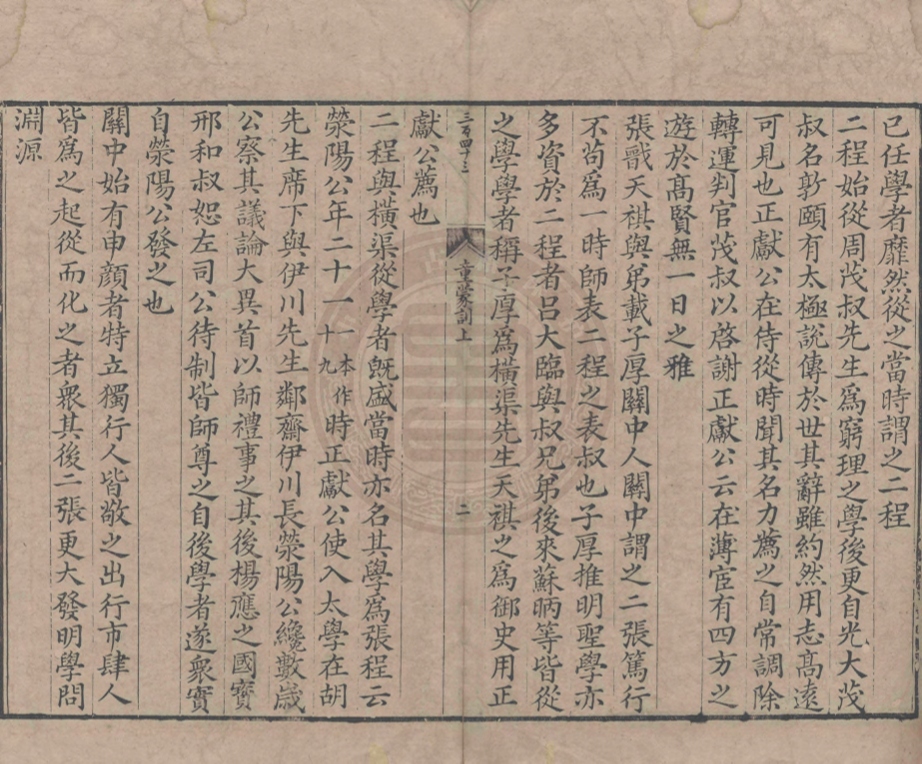 已任學者靡然從之當時謂之二程
二程始從周茂叔先生爲窮理之學後更自光大茂
叔名敦頤有太極說傳於世其辭雖約然用志高遠
可見也正獻公在侍從時聞其名力薦之自常調除
轉運判官茂叔以啓謝正獻公云在薄宦有四方之
遊於高賢無一日之雅
張戩天祺與弟載子厚關中人關中謂之二張篤行
不茍爲一時師表二程之表叔也子厚推明聖學亦
多資於二程者呂大臨與叔兄弟後來蘇昞等皆從
之學學者稱子厚爲橫渠先生天祺之爲御史用正
童蒙訓上
二
獻公薦也
二程與橫渠從學者旣盛當時亦名其學爲張程云
滎陽公年二十一一本作十九時正獻公使入太學在胡
先生席下與伊川先生鄰齋伊川長滎陽公纔數歲
公察其議論大異首以師禮事之其後楊應之國寶
邢和叔恕左司公待制皆師尊之自後學者遂衆實
自滎陽公發之也
關中始有申顏者特立獨行人皆敬之出行市肆人
皆爲之起從而化之者衆其後二張更大發明學問
淵源